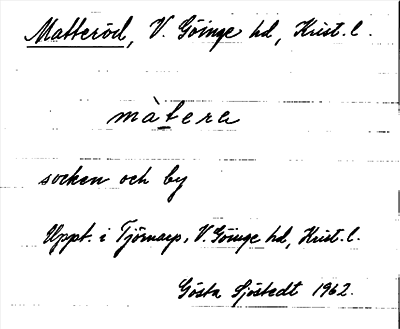 Matteröd, V. Göinge hd, Krist. l.
màtera
socken och by
Uppt. i Tjörnarp, V. Göinge hd, Krist. l.
Gösta Sjöstedt 1962.